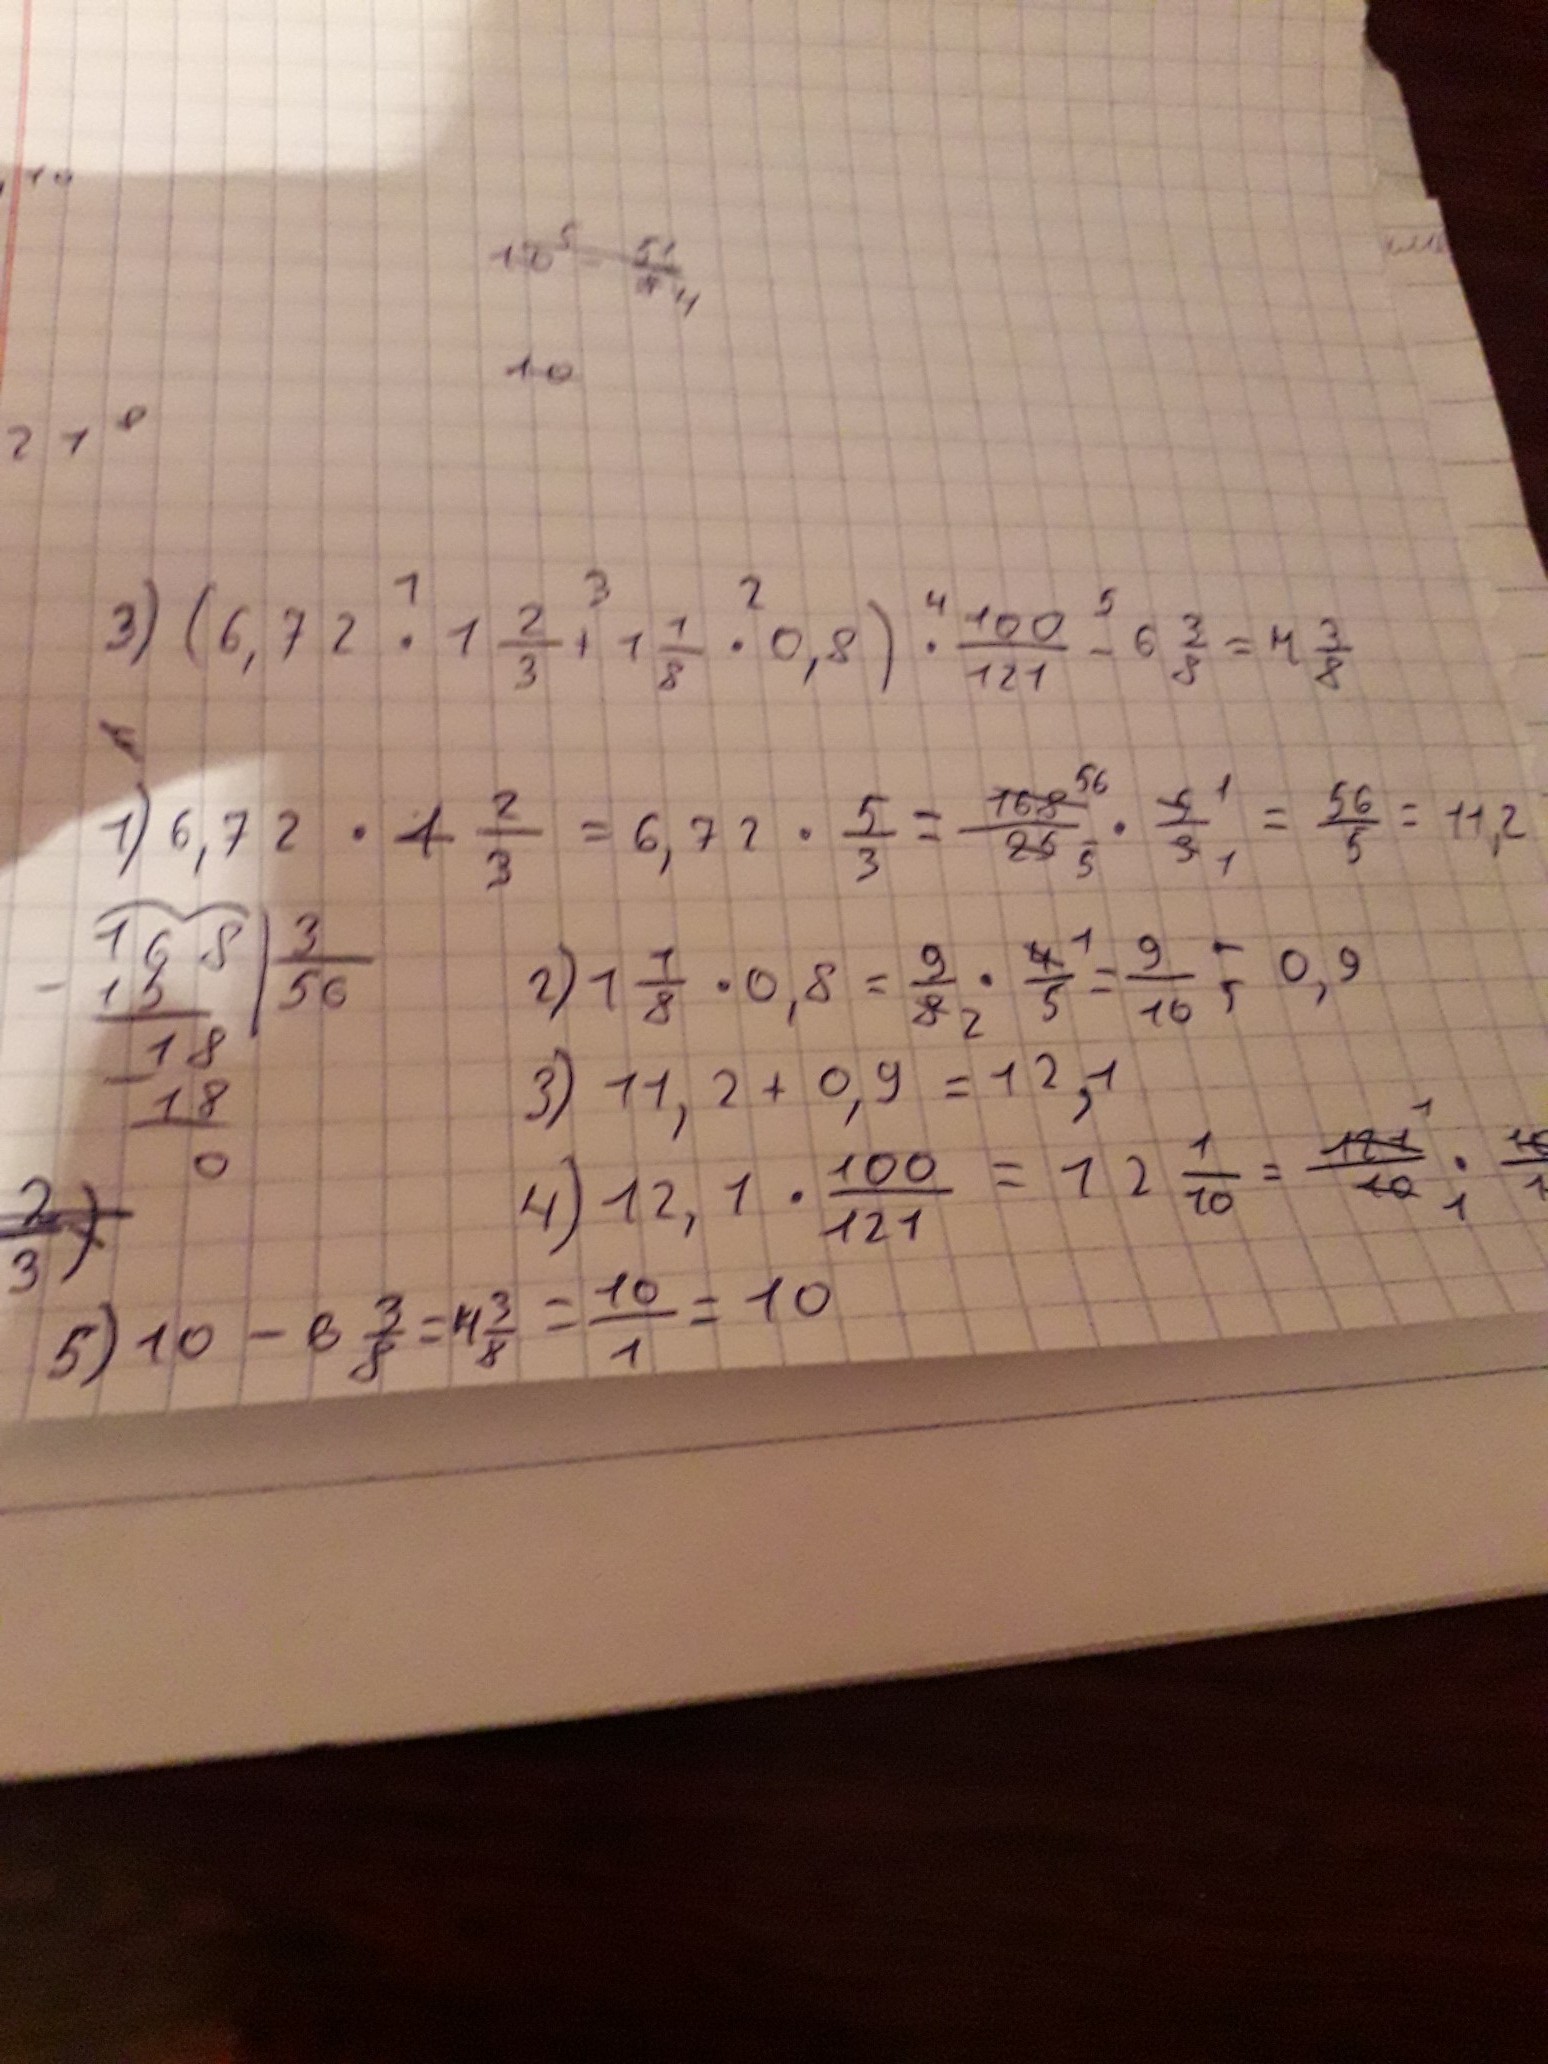 10
10
2 1 8
3) (6,72 · 1 2/3 + 1 1/8 · 0,8) · 100/121 - 6 3/8 = 4 3/8
1) 6,72 · 1 2/3 = 6,72 · 5/3 = 168/25 · 5/3 = 56/5 = 11,2
168 | 3
- 15 | 56
18
- 18
0
2) 1 1/8 · 0,8 = 9/8 · 4/5 = 9/10 = 0,9
3) 11,2 + 0,9 = 12,1
4) 12,1 · 100/121 = 12 1/10 = 121/10 ·
2/3)
5) 10 - 6 3/8 = 4 3/8 = 10/1 = 10